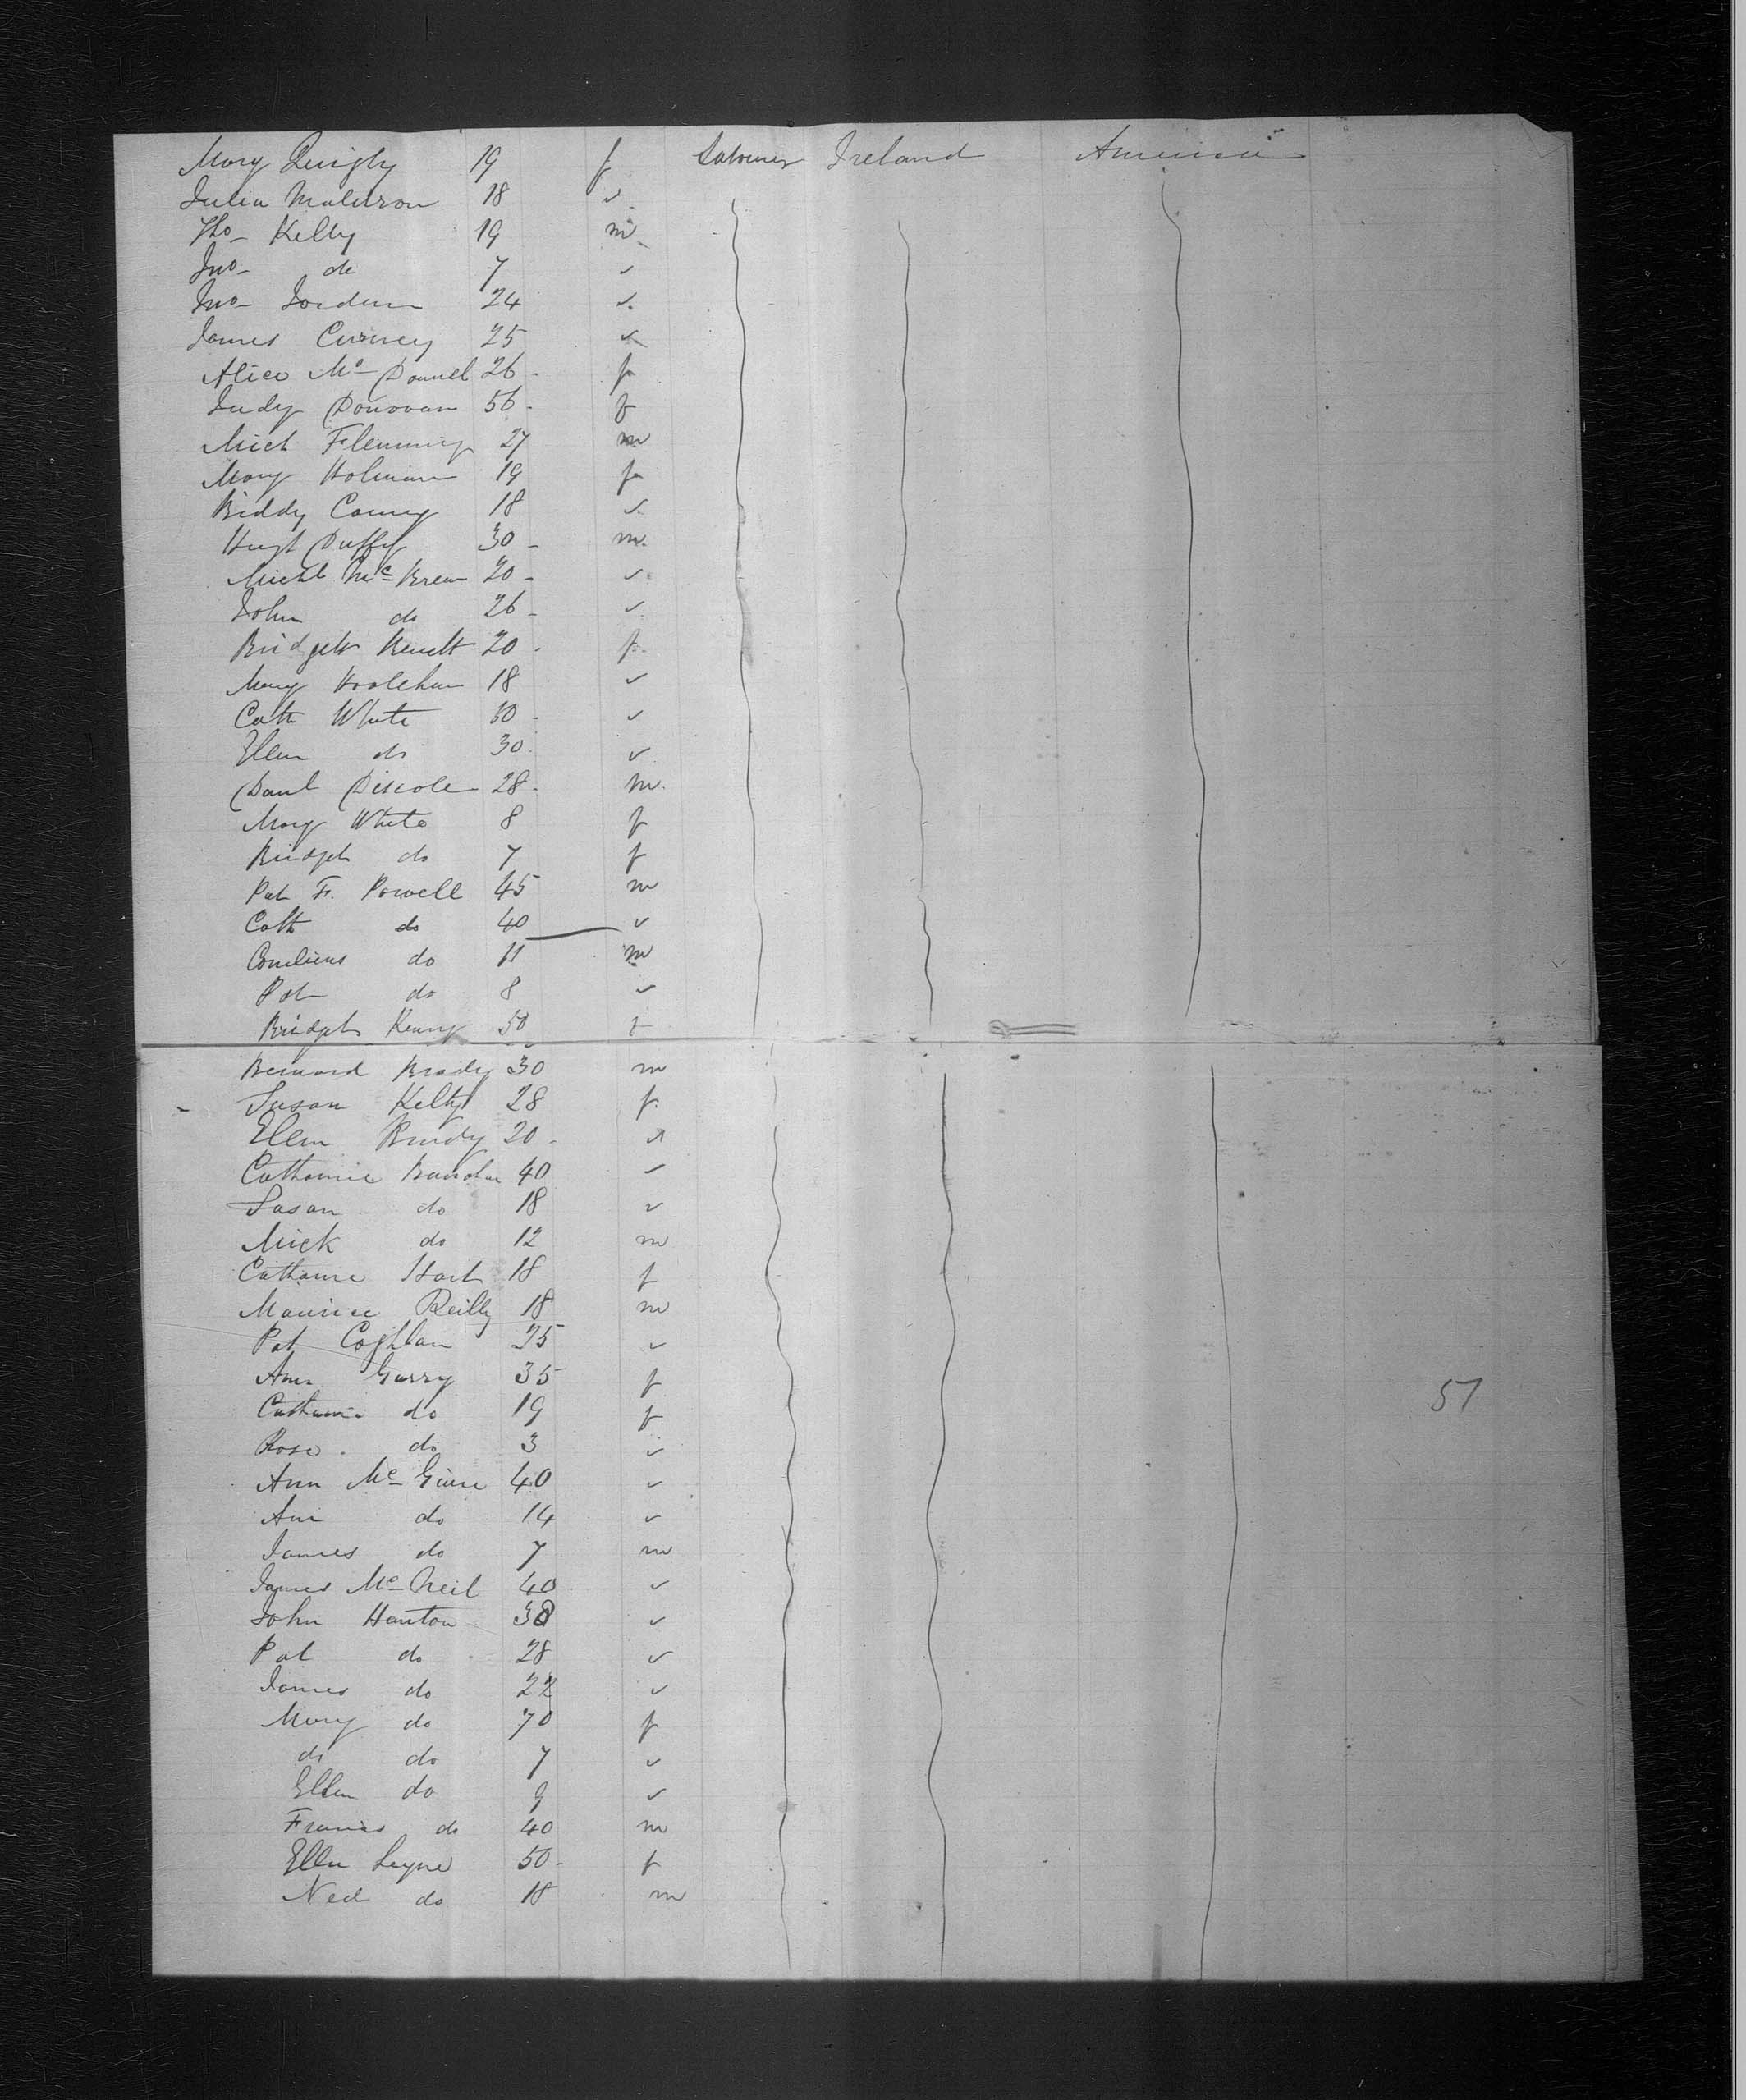 Mary Quigly 19 f Labourer Ireland America
Julia Muldroon 18 ✓
Tho- Kelly 19 m
Jno- do 7 ✓
Jno- Jordan 24 ✓
James Currney 25 ✓
Alice Mc Donnel 26 - f
Judy Donovan 56 - f
Mich Flemming 27 m
Mary Holman 19 f
Biddy Conny 18 ✓
Hugh Duffy 30 - m
Michl Mc Brean 20 - ✓
John do 26 - ✓
Bridgett 20 - f
Mary Hoolehan 18 ✓
Cath White 30 - ✓
Ellen do 30 ✓
Danl Discole 28 - m
Mary White 8 f
Bridget do 7 f
Pat F. Powell 45 m
Cath do 40 ✓
Cornelius do 11 m
Pat do 8 ✓
Bridget Kenny 50 f
Bernard Brady 30 m
Susan Kelly 28 f
Ellen Brady 20 - ✓
Catharine 40 ✓
Susan do 18 ✓
Mick do 12 m
Catharine Hart 18 f
Maurice Reilly 18 m
Pat Coghlan 25 ✓
Ann Garry 35 f
Catharine do 19 f 57
Rose do 3 ✓
Ann Mc Guire 40 ✓
Ann do 14 ✓
James do 7 m
James Mc Neil 40 ✓
John Hanton 30 ✓
Pat do 28 ✓
James do 22 ✓
Mary do 70 f
do do 7 ✓
Ellen do 9 ✓
Frances do 40 m
Ellen Leyne 50 - f
Ned do 18 m